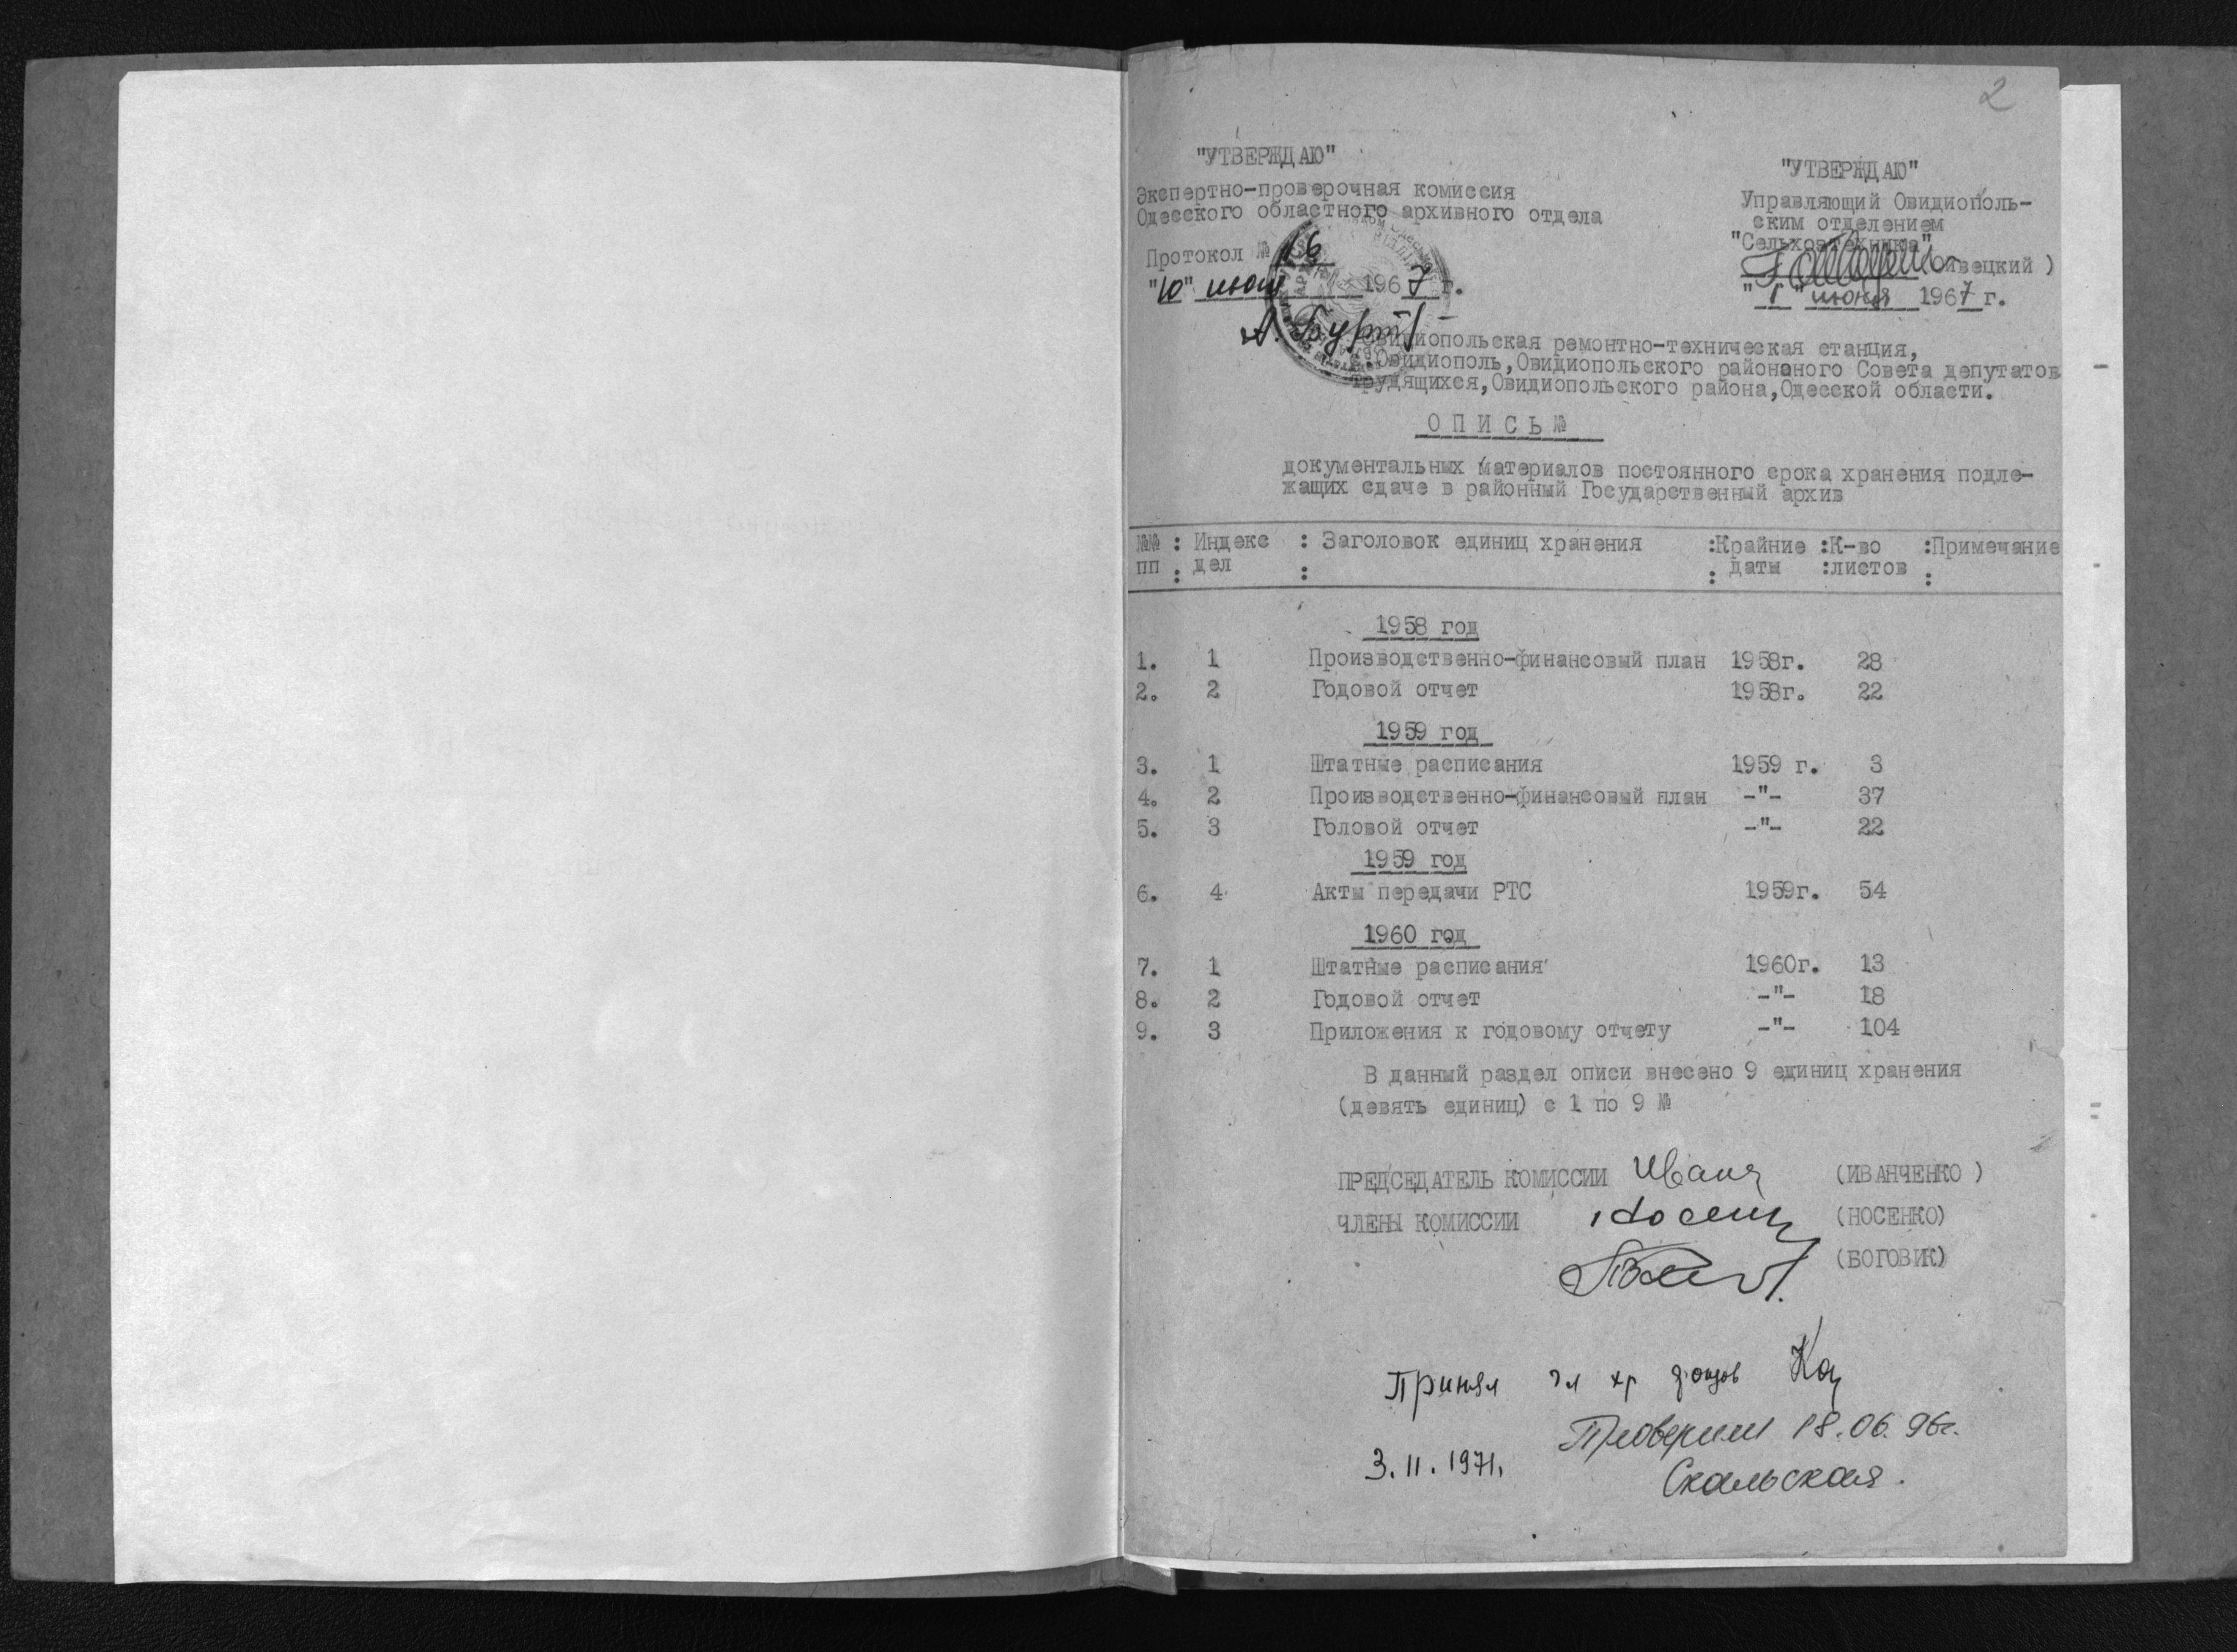 2
"УТВЕРЖДАЮ"
Экспертно-проверочная комиссия
Одесского областного архивного отдела
Протокол № 16
"10" июля 1967 г.
"УТВЕРЖДАЮ"
Управляющий Овидиополь-
ским отделением
"Сельхозтехника"
"1" июня 1967 г.
Овидиопольская ремонтно-техническая станция,
с.Овидиополь,Овидиопольского районаного Совета депутатов
трудящихся,Овидиопольского района,Одесской области.
ОПИСЬ №
документальных материалов постоянного срока хранения подле-
жащих сдаче в районный Государственный архив
№№ : Индекс : Заголовок единиц хранения :Крайние :К-во :Примечание
пп : дел : : даты :листов :
1958 год
1. 1 Производственно-финансовый план 1958г. 28
2. 2 Годовой отчет 1958г. 22
1959 год
3. 1 Штатные расписания 1959 г. 3
4. 2 Производственно-финансовый план -"- 37
5. 3 Головой отчет -"- 22
1959 год
6. 4 Акты передачи РТС 1959г. 54
1960 год
7. 1 Штатные расписания 1960г. 13
8. 2 Годовой отчет -"- 18
9. 3 Приложения к годовому отчету -"- 104
В данный раздел описи внесено 9 единиц хранения
(девять единиц) с 1 по 9 №
ПРЕДСЕДАТЕЛЬ КОМИССИИ (ИВАНЧЕНКО )
ЧЛЕНЫ КОМИССИИ (НОСЕНКО)
(БОГОВИК)
Принял гл хр фондов
Проверили 18.06.96г.
3.11.1971.
Скальская.